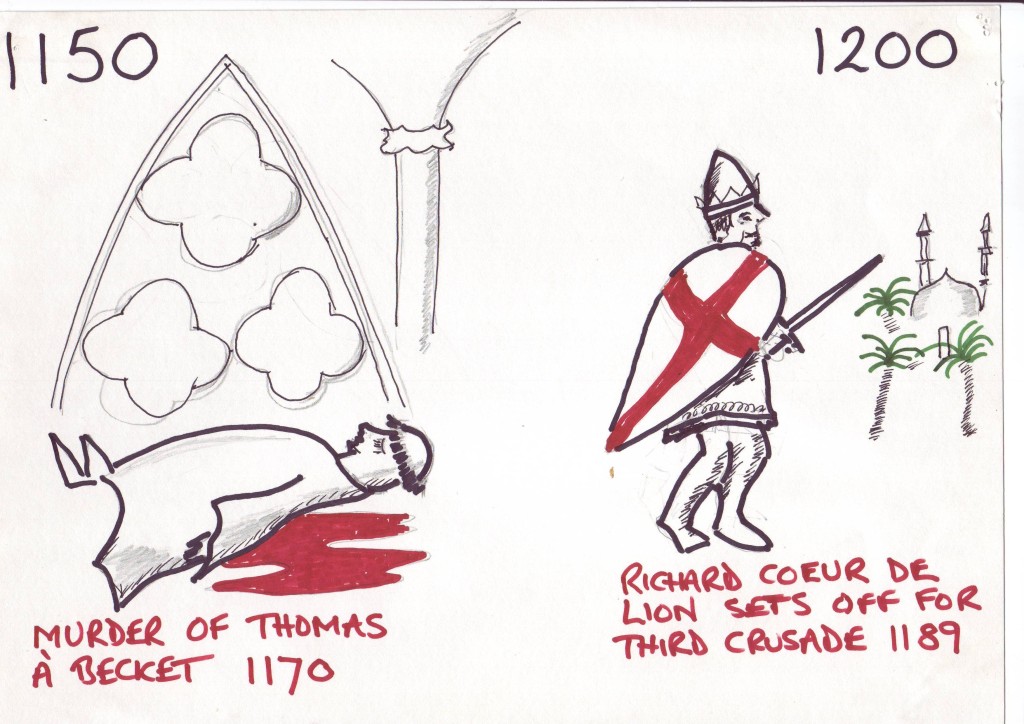 1150
1200
MURDER OF THOMAS
À BECKET 1170
RICHARD COEUR DE
LION SETS OFF FOR
THIRD CRUSADE 1189